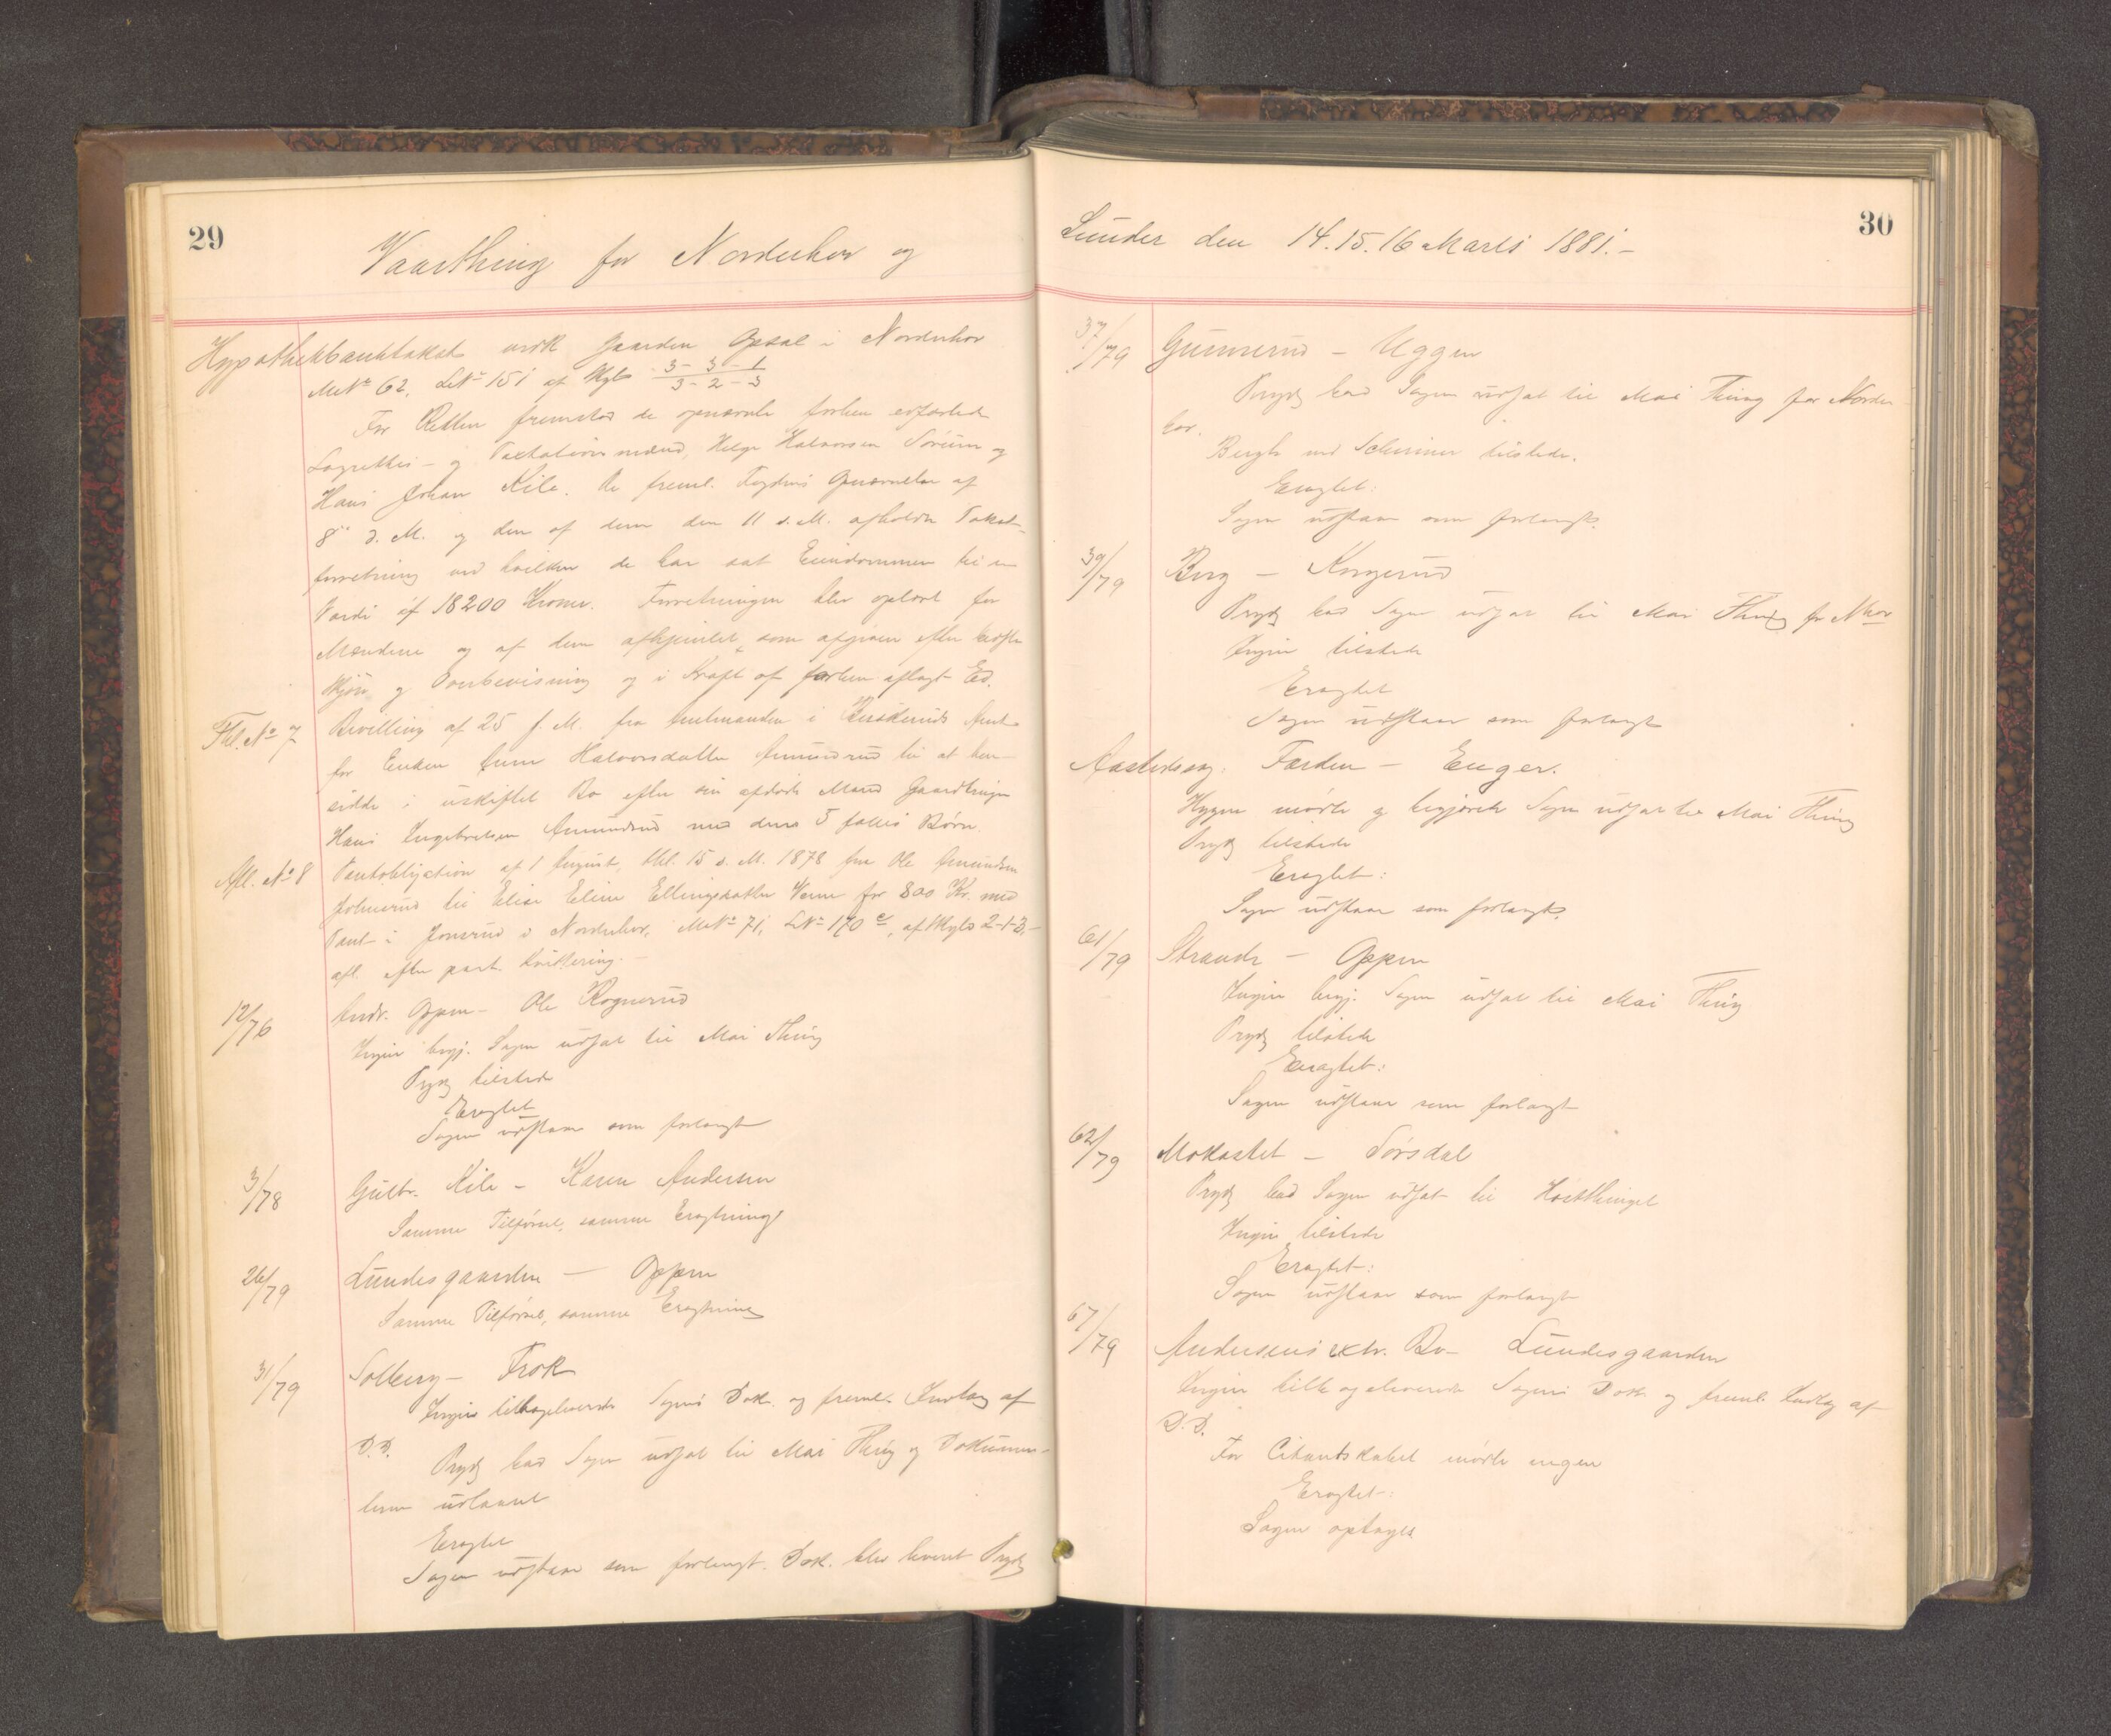 29
Vaarthing for Norderhov og
Hypothekbanktakst over Gaarden Opsal i Norderhov
M. No 62, L. No 151 af Skyld 3-3-1 / 3-2-3
For Retten fremstod de opnævnte forhen edfæstede
Lagrettes- og Taxationsmænd, Helge Halvorsen Sørum og
Hans Johan Kile. De freml. Fogdens Opnævnelse af
8de d. M. og den af dem den 11 d. M. afholdte Takst-
forretning ved hvilken de har sat Eiendommen til en
Værdi af 18200 Kroner. Forretningen blev oplæst for
Mændene og af dem afhjemlet som afgiven efter bedste
Skjøn og Overbevisning og i Kraft af forhen aflagt Ed.
Thl. No 7 Bevilling af 25 f. M. fra Amtmanden i Buskeruds Amt
for Enken Anne Halvorsdatter Amundrud til at hen-
sidde i uskiftet Bo efter sin afdøde Mand Gaardbruger
Hans Engebretsen Amundrud med deres 5 fælles Børn.
Afl. No 8 Pantobligation af 1 August, thl. 15 s. M. 1878 fra Ole Amundsen
Johnsrud til Elise Eline Ellingsdatter Verne for 800 Kr. med
Pant i Jonsrud i Norderhov, M. No 71, L. No 170 c, af Skyld 2-1-3.-
afl. efter paat. Kvittering.-
12/76 Andr. Oppen - Ole Rognerud
Ingier begj. Sagen udsat til Mai Thing
Prydz tilstede
Eragtet
Sagen udstaar som forlangt
3/78 Gulbr. Kile - Karen Andersen
Samme Tilførsel, samme Eragtning
26/79 Lundesgaarden - Oppen
Samme Tilførsel, samme Eragtning
31/79 Solberg - Frok
Ingier tilbageleverede Sagens Dok. og freml. Indlæg af
D.D.
Prydz bad Sagen udsat til Mai Thing og Dokumen-
terne udlaant
Eragtet
Sagen udstaar som forlangt. Dok. blev leveret Prydz
30
Lunder den 14. 15. 16 Marts 1881.-
37/79 Gunnerud - Uggen
Prydz bad Sagen udsat til Mai Thing for Norder-
hov.
Bergh ved Scheiner tilstede.
Eragtet:
Sagen udstaar som forlangt.
39/79 Berg - Korgerud
Prydz bad Sagen udsat til Mai Thing for Nhov
Ingier tilstede
Eragtet
Sagen udstaar som forlangt
Aastedssag: Færden - Enger.
Hygen mødte og begjærede Sagen udsat til Mai Thing
Prydz tilstede
Eragtet:
Sagen udstaar som forlangt.
61/79 Strande - Oppen
Ingier begj. Sagen udsat til Mai Thing
Prydz tilstede
Eragtet:
Sagen udstaar som forlangt
62/79 Mokastet - Sørsdal
Prydz bad Sagen udsat til Høstthinget
Ingier tilstede
Eragtet:
Sagen udstaar som forlangt
67/79 Andersens Bo - Lundesgaarden
Ingier tilbageleverede Sagens Dok. og freml. Indlæg af
D.D.
For Citantskabet mødte ingen
Eragtet:
Sagen optages